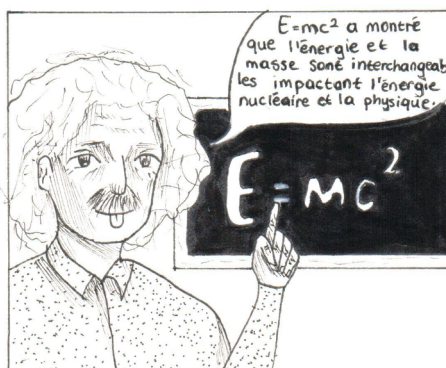 E=mc² a montré
que l'énergie et la
masse sont interchangeab
les impactant l'énergie
nucléaire et la physique.
E = mc²